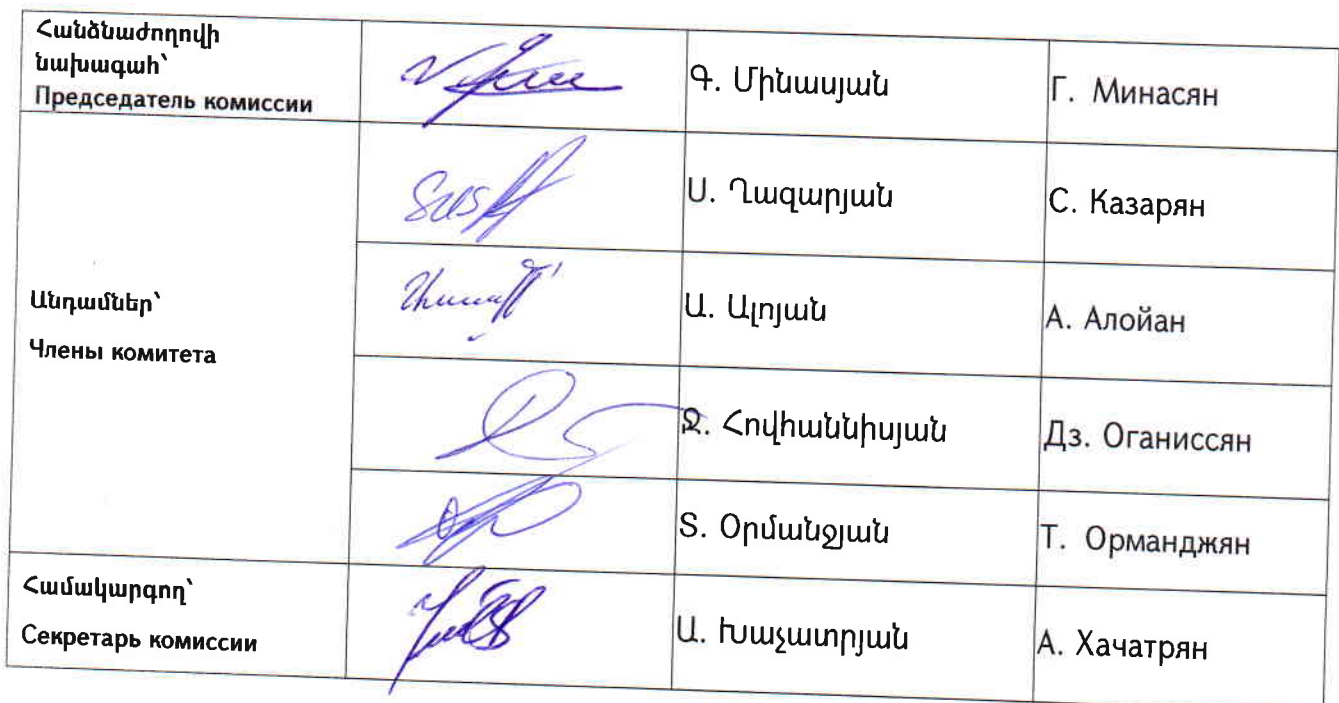 Հանձնաժողովի
նախագահ՝
Председатель комиссии
Գ. Մինասյան
Г. Минасян
Ս. Ղազարյան
С. Казарян
Անդամներ՝
Члены комитета
Ա. Ալոյան
А. Алойан
Ջ. Հովհաննիսյան
Дз. Оганиссян
Տ. Օրմանջյան
Т. Орманджян
Համակարգող՝
Секретарь комиссии
Ա. Խաչատրյան
А. Хачатрян